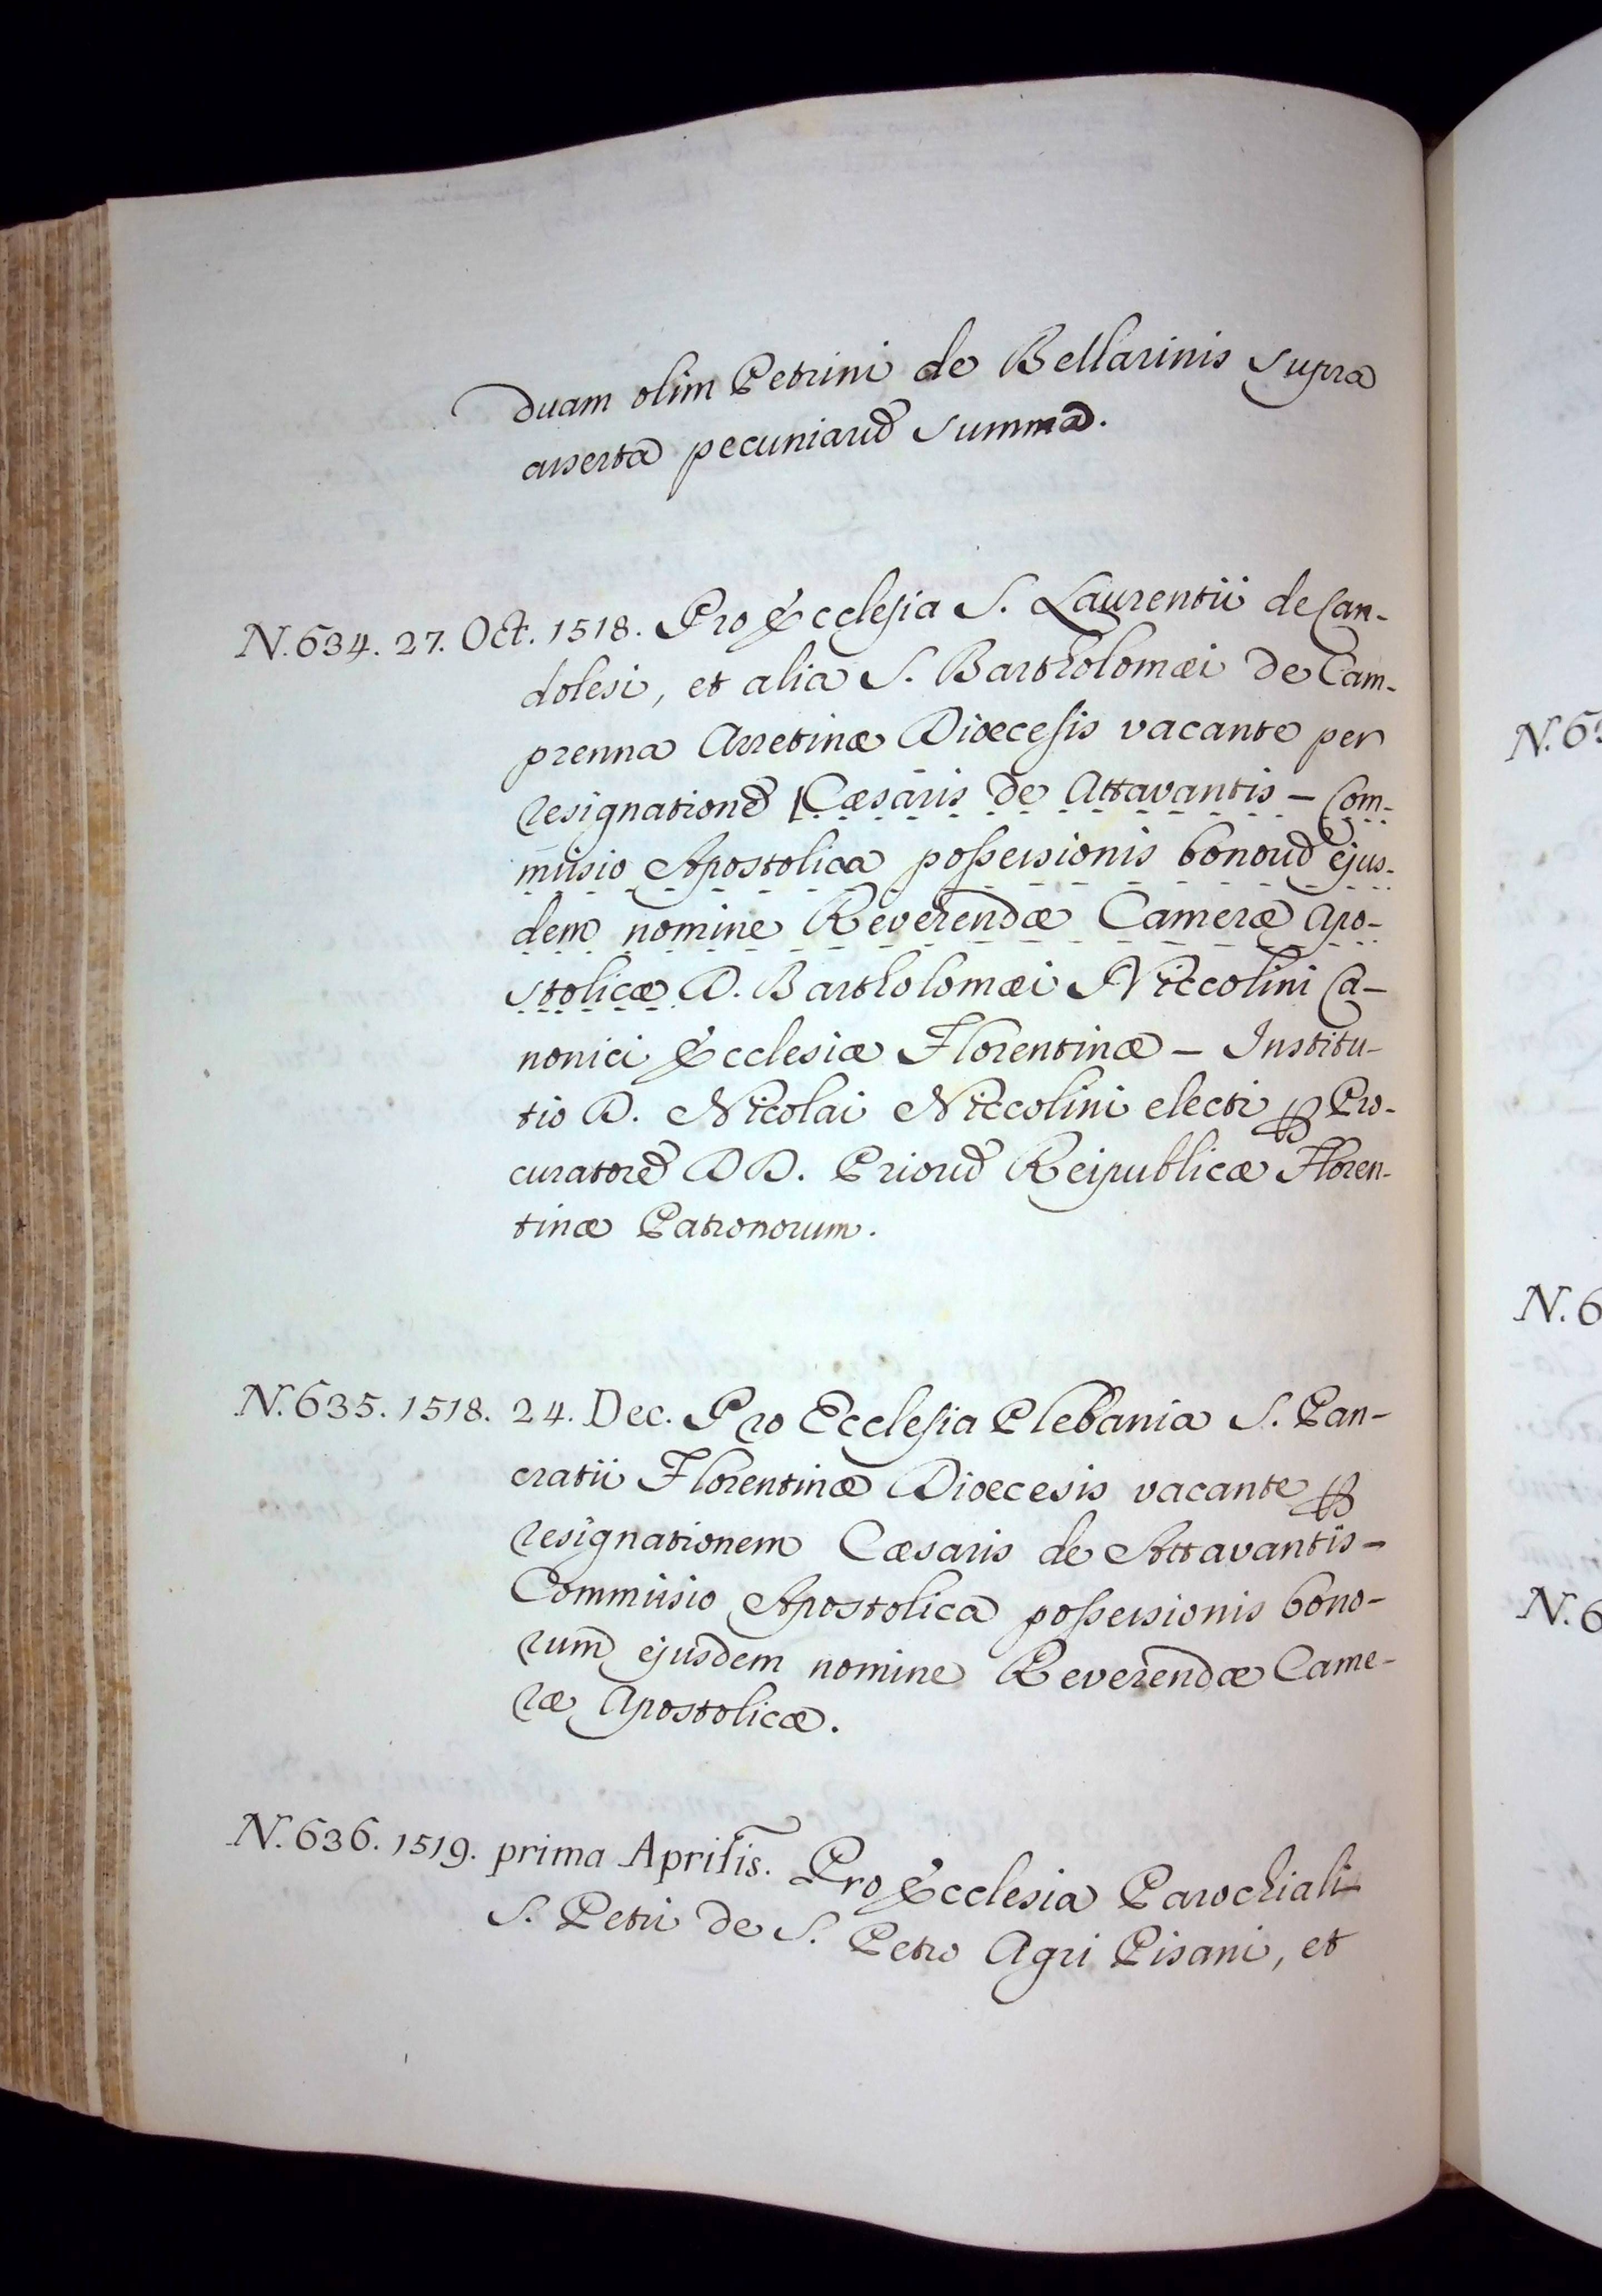 duam olim Petrini de Bellarinis supra
asserta pecuniarū summa.
N. 634. 27. Oct. 1518. Pro Ecclesia S. Laurentii de Can-
dolesi, et alia S. Bartholomæi de Cam-
prenna Arretinæ Diœcesis vacante per
resignationē [Cæsaris de Attavantis – Com-
missio Apostolica possessionis bonorū ejus-
dem nomine Reverendæ Cameræ Apo-
stolicæ D. Bartholomæi Niccolini Ca-
nonici Ecclesiæ Florentinæ – Institu-
tio D. Nicolai Niccolini electi ꝑ Pro-
curatorē DD. Priorū Reipublicæ Floren-
tinæ Patronorum.
N. 635. 1518. 24. Dec. Pro Ecclesia Plebania S. Pan-
cratii Florentinæ Diœcesis vacante ꝑ
resignationem Cæsaris de Attavantis –
Commissio Apostolica possessionis bono-
rum ejusdem nomine Reverendæ Came-
ræ Apostolicæ.
N. 636. 1519. prima Aprilis. Pro Ecclesia Parochiali
S. Petri de S. Petro Agri Pisani, et
N. 6
N. 6
N. 6